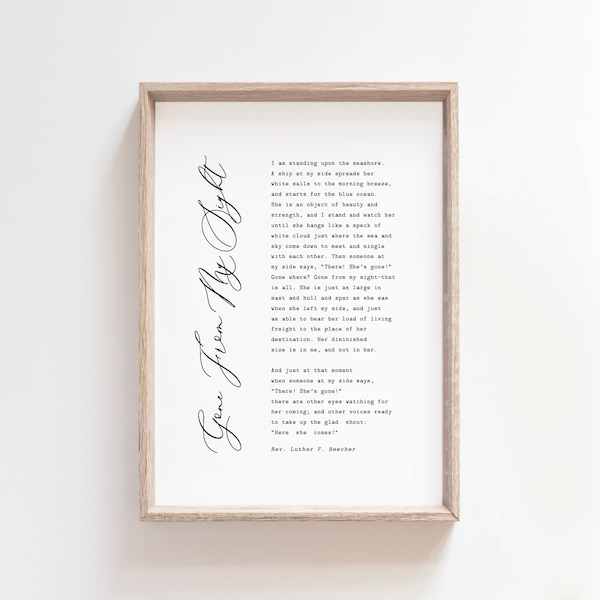 Gone From My Sight
I am standing upon the seashore.
A ship at my side spreads her
white sails to the morning breeze,
and starts for the blue ocean.
She is an object of beauty and
strength, and I stand and watch her
until she hangs like a speck of
white cloud just where the sea and
sky come down to meet and mingle
with each other. Then someone at
my side says, "There! She's gone!"
Gone where? Gone from my sight-that
is all. She is just as large in
mast and hull and spar as she was
when she left my side, and just
as able to bear her load of living
freight to the place of her
destination. Her diminished
size is in me, and not in her.
And just at that moment
when someone at my side says,
"There! She's gone!"
there are other eyes watching for
her coming; and other voices ready
to take up the glad shout:
"Here she comes!"
Rev. Luther F. Beecher